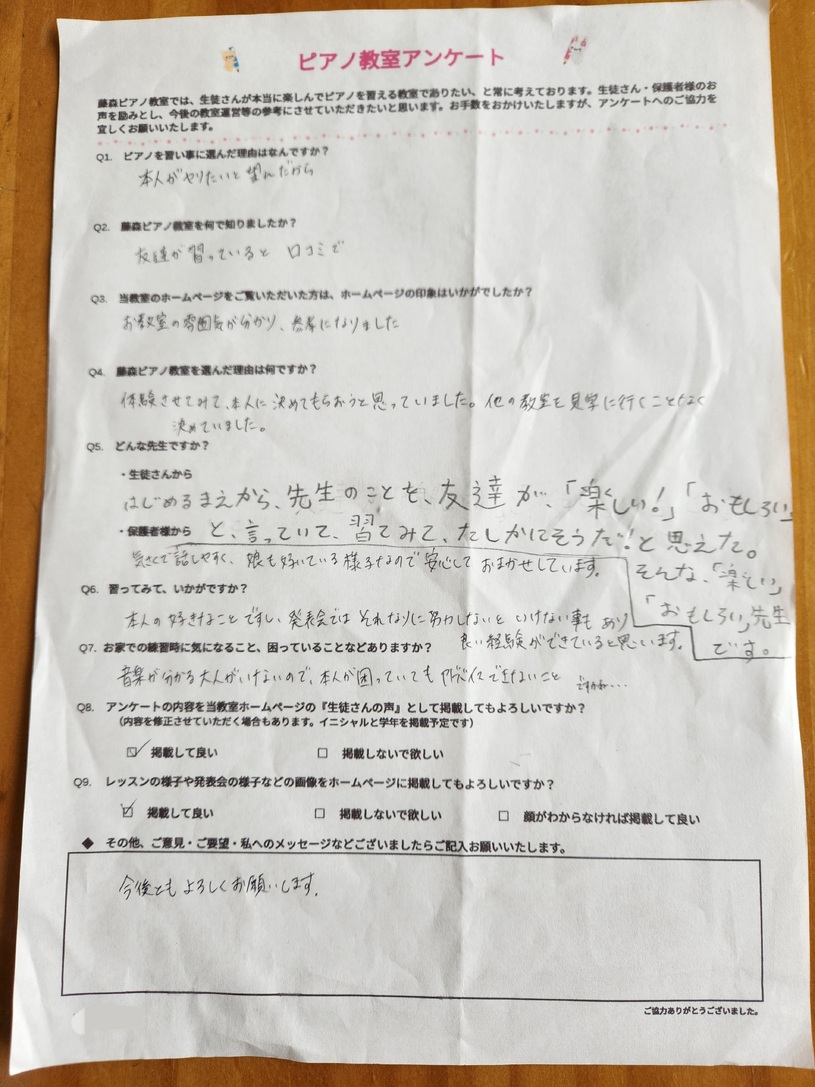 ピアノ教室アンケート
藤森ピアノ教室では、生徒さんが本当に楽しんでピアノを習える教室でありたい、と常に考えております。生徒さん・保護者様のお
声を励みとし、今後の教室運営等の参考にさせていただきたいと思います。お手数をおかけいたしますが、アンケートへのご協力を
宜しくお願いいたします。
Q1. ピアノを習い事に選んだ理由はなんですか？
本人がやりたいと望んだから
Q2. 藤森ピアノ教室を何で知りましたか？
友達が習っていると 口コミで
Q3. 当教室のホームページをご覧いただいた方は、ホームページの印象はいかがでしたか？
お教室の雰囲気が分かり、参考になりました
Q4. 藤森ピアノ教室を選んだ理由は何ですか？
体験させてみて、本人に決めてもらおうと思っていました。他の教室を見学に行くことなく
決めていました。
Q5. どんな先生ですか？
・生徒さんから
はじめるまえから、先生のことを、友達が、「楽しい！」「おもしろい」
と、言っていて、習てみて、たしかにそうだ！と思えた。
そんな、「楽しい」
「おもしろい」先生
です。
・保護者様から
気さくで話しやすく、娘も好いている様子なので安心しておまかせしています。
Q6. 習ってみて、いかがですか？
本人の好きなことですし、発表会ではそれなりに努力しないといけない事もあり
良い経験ができていると思います。
Q7. お家での練習時に気になること、困っていることなどありますか？
音楽が分かる大人がいないので、本人が困っていてもアドバイスできないこと
ですかね…
Q8. アンケートの内容を当教室ホームページの『生徒さんの声』として掲載してもよろしいですか？
（内容を修正させていただく場合もあります。イニシャルと学年を掲載予定です）
☑ 掲載して良い □ 掲載しないで欲しい
Q9. レッスンの様子や発表会の様子などの画像をホームページに掲載してもよろしいですか？
☑ 掲載して良い □ 掲載しないで欲しい □ 顔がわからなければ掲載して良い
◆ その他、ご意見・ご要望・私へのメッセージなどございましたらご記入お願いいたします。
今後ともよろしくお願いします。
ご協力ありがとうございました。